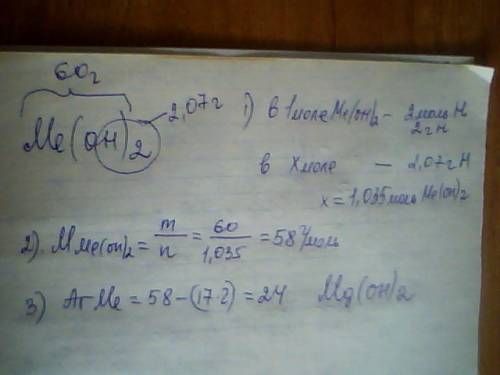 60г
Me(OH)2 2,07г
1) в 1 моле Me(OH)2 – 2 моль H
2г H
в X моле — 2,07г H
x = 1,035 моль Me(OH)2
2). M Me(OH)2 = m/n = 60/1,035 = 58 г/моль
3) Ar Me = 58 – (17·2) = 24 Mg(OH)2